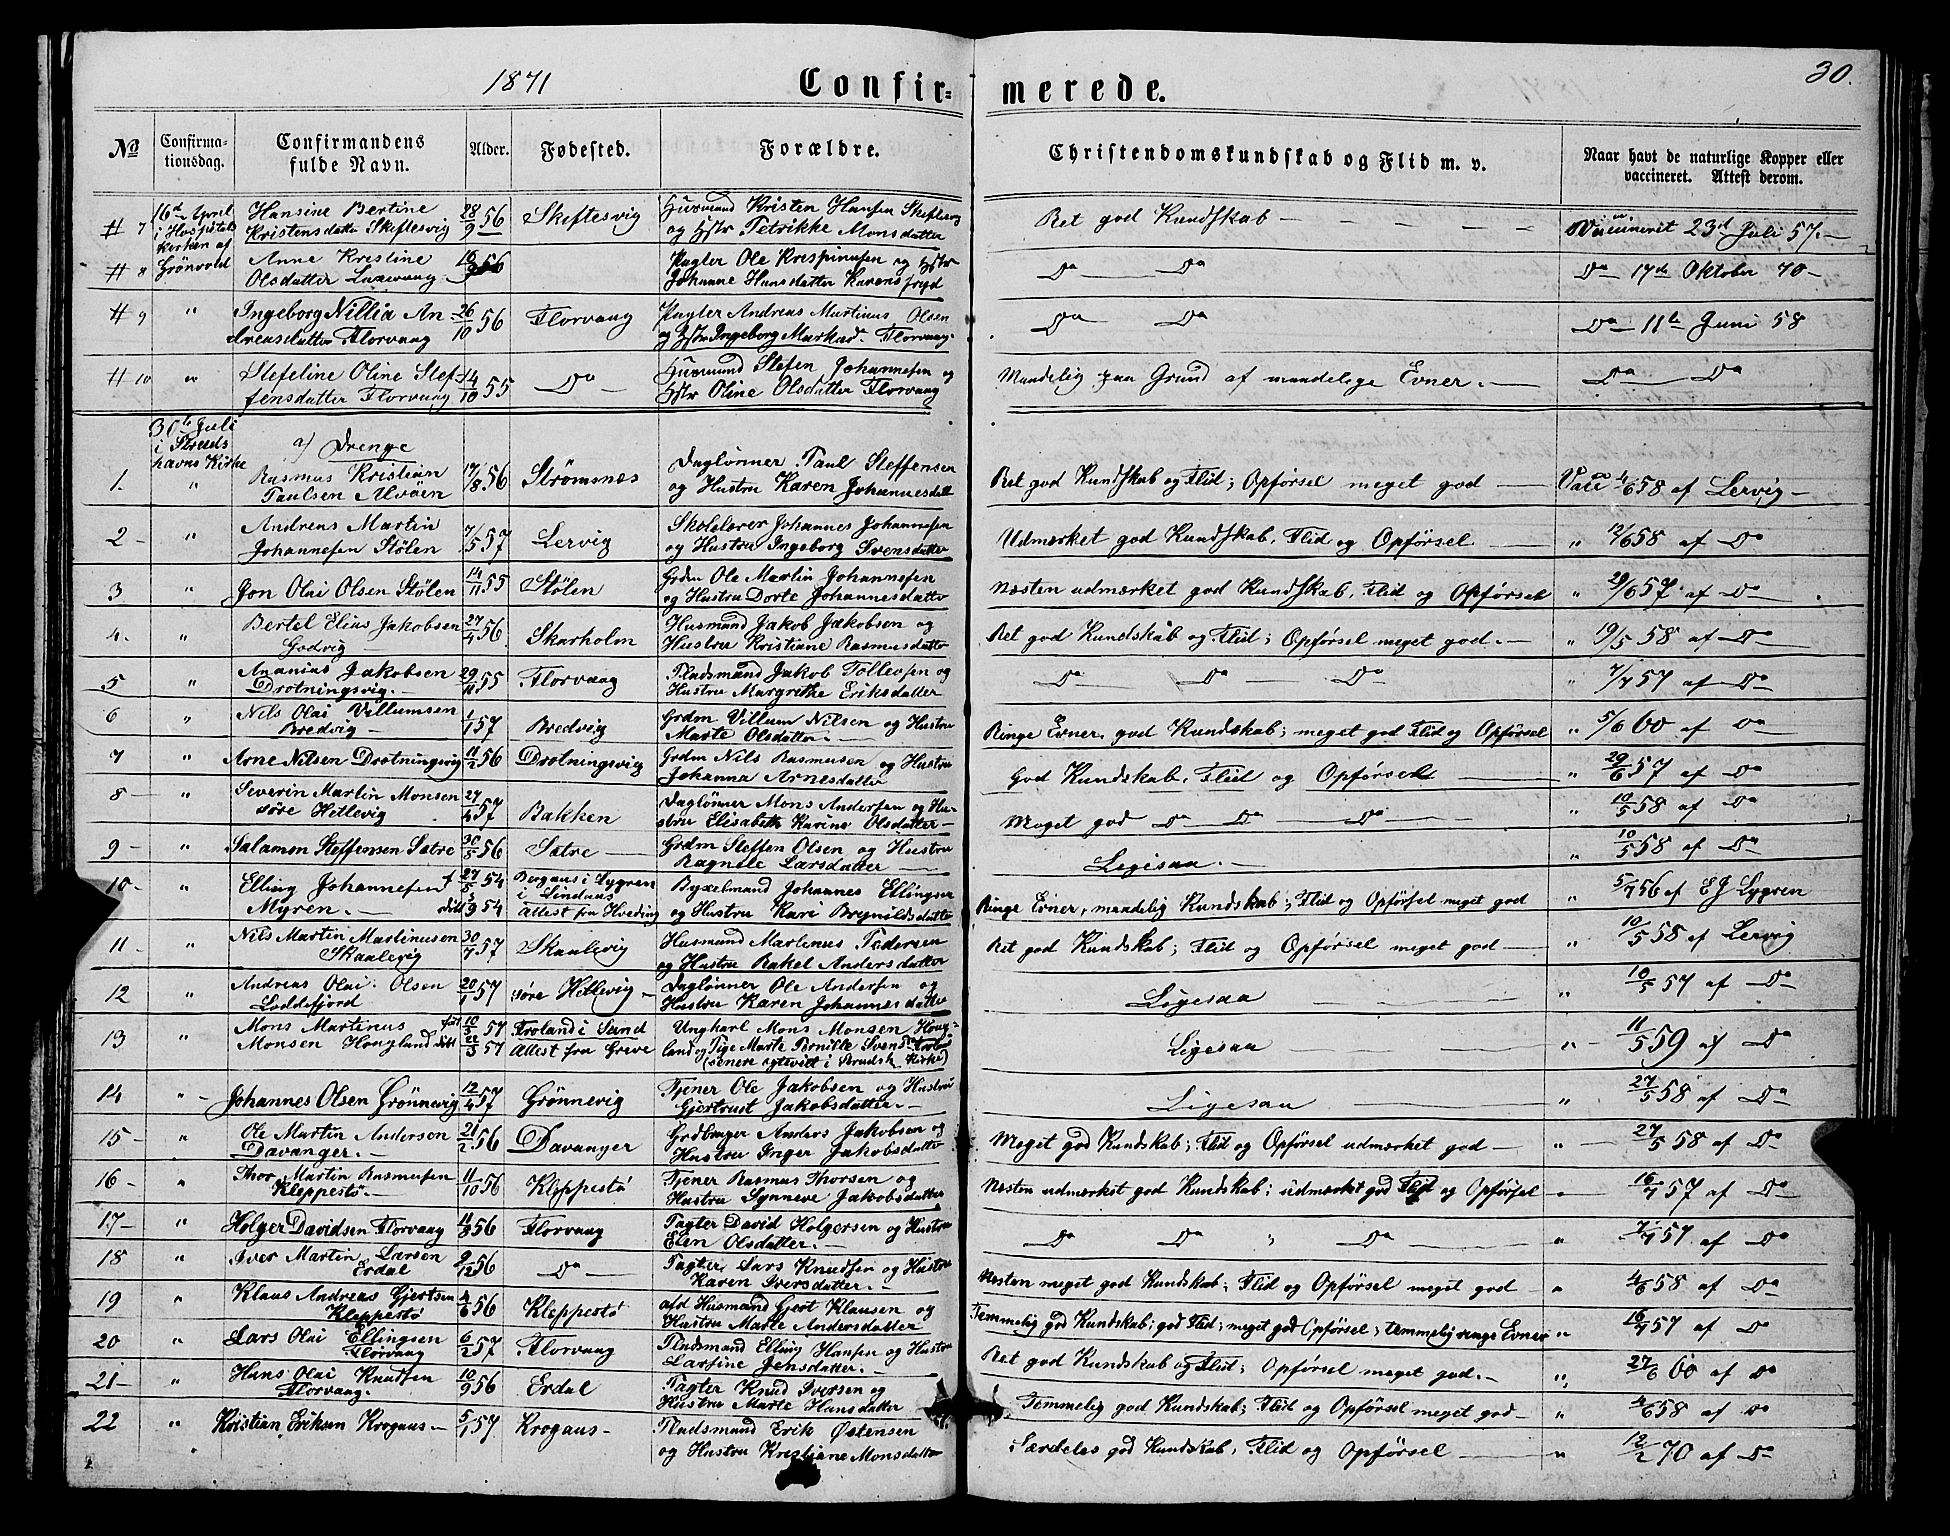 1871
30.
Confir= merede.
No
Confirma-
tionsdag.
Confirmandens
fulde Navn.
Alder.
Fødested.
Forældre.
Christendomskundskab og Flid m. v.
Naar havt de naturlige Kopper eller
vaccineret. Attest derom.
# 7 16de April i Hospitals Kirken af Grönvold
Hansine Bertine 28/9 56 Skeftesvig Husmand Kristen Hansen Skeftesvig
Kristensdatter Skeftesvig og Hstr Petrikke Monsdatter
Ret god Kundskab — Vaccineret 23d Juli 57.—
# 8 Anne Kristine 16/9 56 Pagter Ole Krispinusen og Hstr
Olsdatter Johanne Hansdatter
Do Do Do 17de Oktober 70—
# 9 " Ingeborg Nillia An- 26/10 56 Florvaag Pagter Andreas Martinus Olsen
dreasdatter Florvaag og Hstr Ingeborg Markusd. Florvaag.
Do Do Do 11te Juni 58
# 10 " Stefeline Oline Stef- 14/10 55 Do Husmand Stefen Johannesen og
fensdatter Florvaag Hstr Oline Olsdatter Florvaag
Maadelig paa Grund af maadelige Evner.— Do Do
30te Juli
i Struds
havns Kirke
a) Drenge
1. " Rasmus Kristian 17/8 56 Strømsnes Daglønner Paul Steffensen
Paulsen Alvöen og Hustru Karen Johannesdatt
Ret god Kundskab og Flid; Opførsel meget god — Vacc 4/6 58 af Lervig—
2 - " Andreas Martin 7/5 57 Lervig Skolelærer Johannes Johannesen
Johannesen Stölen og Hustru Ingeborg Svensdatter
Udmærket god Kundskab, Flid og Opførsel — " 12/6 58 af Do
3 " Jon Olai Olsen Stölen 14/11 55 Stölen Grdm Ole Martin Johannesen
og Hustru Dorte Johannesdatter
Næsten udmærket god Kundskab, Flid og Opførsel " 29/6 57 af Do
4. " Bertel Elias Jakobsen 27/4 56 Skarholm Husmand Jakob Jakobsen og
Godvig — Hustru Kristiane Rasmusdatter
Ret god Kundskab og Flid; Opførsel meget god.— " 19/5 58 af Do
5 " Ananias Jakobsen 29/11 55 Florvaag Pladsmand Jakob Tollefsen og
Drotningsvig.— Hustru Margrethe Eriksdatter
Do Do Do " 7/7 57 af Do
6 " Nils Olai Villumsen 1/1 57 Bredvig Grdm Villum Nilsen og Hustru
Bredvig — Marte Olsdatter.—
Ringe Evner, god Kundskab; meget god Flid og Opførsel " 5/6 60 af Do
7 " Arne Nilsen Drotningsvig 11/2 56 Drotningsvig Grdm Nils Rasmusen og Hustru
Johanna Arnesdatter
God Kundskab, Flid og Opførsel — " 29/6 57 af Do
8 - " Severin Martin Monsen 27/4 57 Bakken Daglønner Mons Andersen og Hu-
søre Hetlevig stru Elisabeth Karine Olsdatter—
Meget god Do Do Do " 10/5 58 af Do
9 - " Salamon Steffensen Sætre 30/5 56 Sætre — Grdm Steffen Olsen og Hustru
Ragnile Larsdatter —
Ligesaa.— " 10/5 58 af Do
10 - " Elling Johannesen f 27/5 54 i Lygren Bygselmand Johannes Ellingsen
i Lindaas
Myren.— döbt 9 54 Attest fra Hveding og Hustru Kari Brynildsdatter
Ringe Evner, maadelig Kundskab; Flid og Opførsel meget god " 5/7 56 af E J Lygren
11 - " Nils Martin Martinusen 30/7 57 Skaalevig Husmand Martinus Pedersen
Skaalevig og Hustru Rakel Andersdatter
Ret god Kundskab; Flid og Opførsel meget god — " 10/5 58 af Lervig
12 " Andreas Olai Olsen 20/1 57 søre Hetlevig— Daglønner Ole Andersen og
Loddefjord Hustru Karen Johannesdatter
Ligesaa — " 10/5 57 af Do
13 " Mons Martinus föd 10/3 57 Froland i Sund Ungkarl Mons Monsen Houg-
Monsen Hougland döbt 22/3 57 Attest fra Greve land og Pige Marte Pernille Svensd
(senere egteviet i Strudsh Kirke)
Ligesaa — " 11/5 59 af Do
14 " - Johannes Olsen Grønnevig 12/4 57 Grønnevig Tjener Ole Jakobsen og Hustru
Gjertrud Jakobsdatter.—
Ligesaa — " 27/5 58 af Do
15 - " Ole Martin Andersen 21/2 56 Davanger Grdbruger Anders Jakobsen og
Davanger.— Hustru Inger Jakobsdatter
Meget god Kundskab; Flid og Opførsel udmærket god — " 27/5 58 af Do
16 - " Thor Martin Rasmusen 11/10 56 Kleppestö Tjener Rasmus Thorsen og
Kleppestö.— Hustru Synneve Jakobsdatter
Næsten udmærket god Kundskab; udmærket god Flid og Opførsel " 16/7 57 af Do
17 - " Holger Davidsen Florvaag 11/8 56 Florvaag Pagter David Holgersen og Hustru
Elen Olsdatter.—
Do Do " Do " 7/7 57 af Do
18 " Iver Martin Larsen 9/12 56 Do Pagter, Lars Knudsen og Hustru
Erdal Karen Iversdatter.—
Næsten meget god Kundskab; Flid og Opførsel meget god — " 4/6 58 af Do
19 " Klaus Andreas Gjertsen 4/6 56 Kleppestö afd Husmand Gjert Klausen og
Kleppestö Hustru Marte Andersdatter
Temmelig god Kundskab; god Flid; meget god Opførsel; temmelig ringe Evner " 16/7 57 af Do
20 " Lars Olai Ellingsen 6/2 57 Florvaag Pladsmand Elling Hansen og Hustru
Florvaag Larsine Jensdatter.—
Ret god Kundskab og Flid; Opførsel meget god.— " 27/6 60 af Do
21 - " Hans Olai Knudsen 10/9 56 Erdal Pagter Knud Iversen og
Florvaag. Hustru Marte Hansdatter
Temmelig god Kundskab; Flid og Opførsel meget god— " 4/6 58 af Do
22 " Kristian Eriksen Krogaas— 5/1 57 Krogaas- Pladsmand Erik Østensen
og Hustru Kristiane Monsdatter
Særdeles god Kundskab, Flid og Opførsel — " 12/2 70 af Do